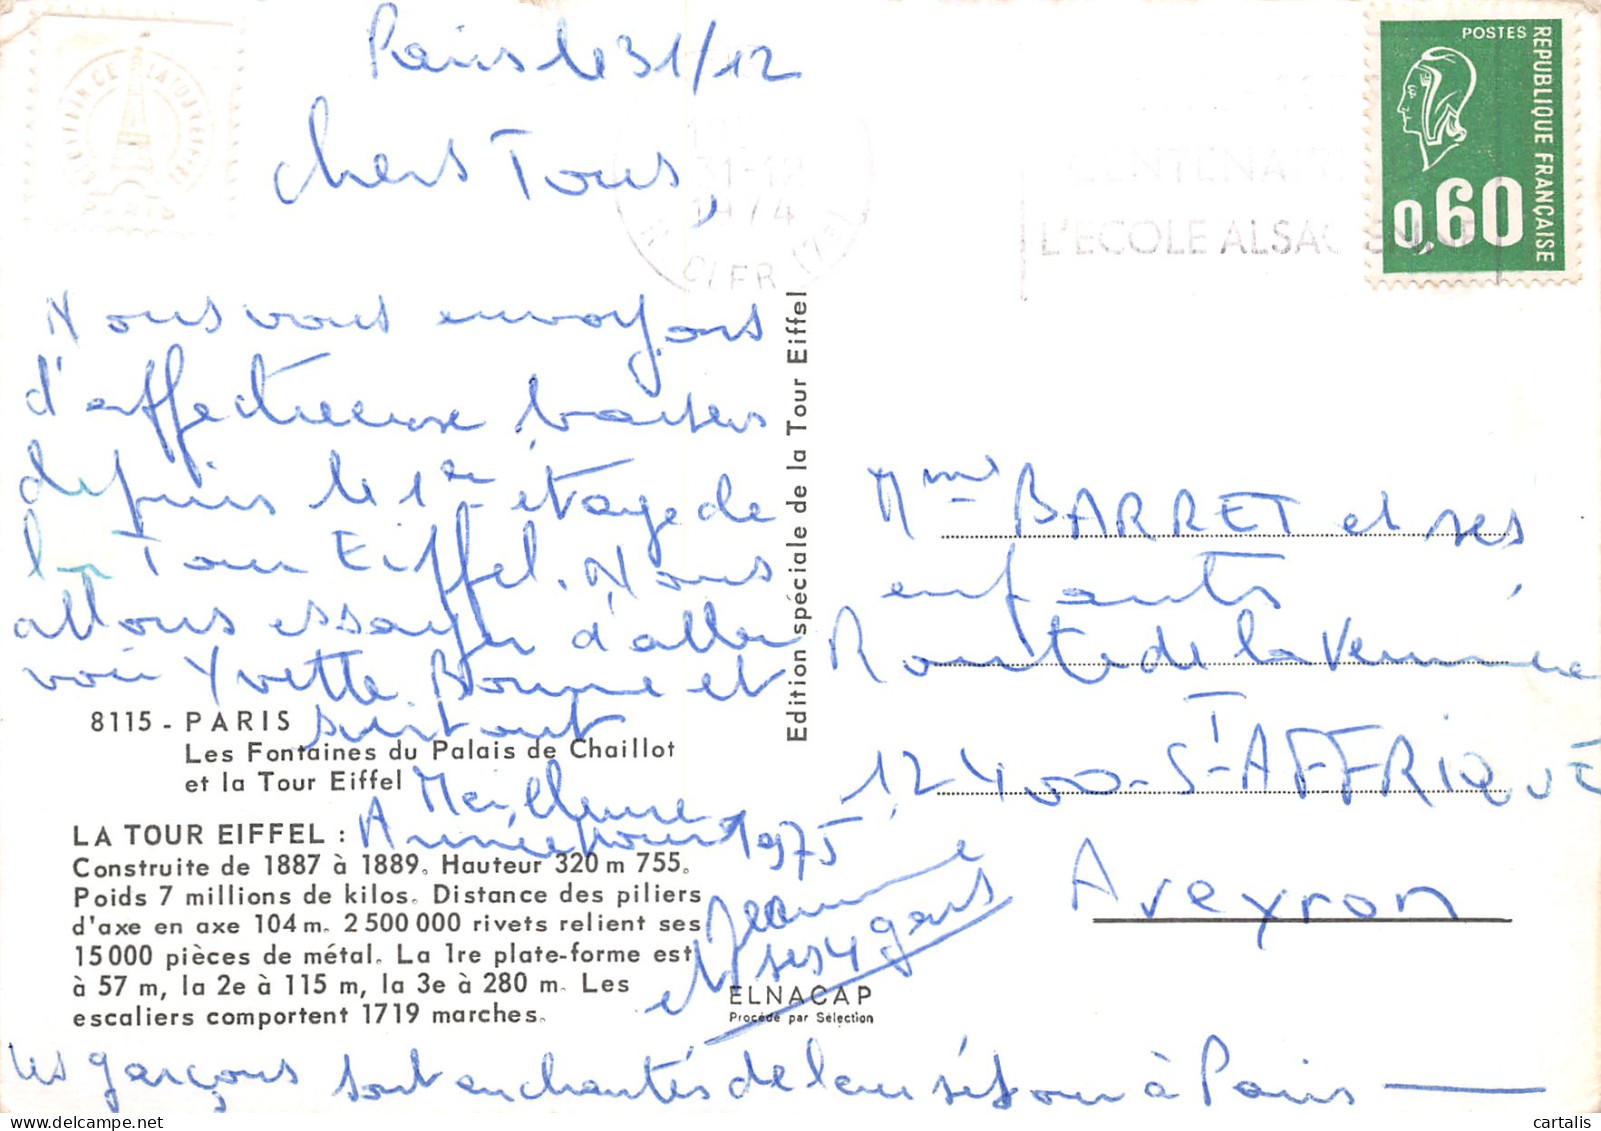 Paris le 31/12
Chers Tous,
Nous vous envoyons
d'affectueuse baisers
depuis le 1er étage de
la Tour Eiffel. Nous
allons essayer d'aller
voir Yvette Bonne et
surtout
Meilleure
Année pour 1975
Jeanne
et ses 4 gars
les garçons sont enchantés de leur séjour à Paris
8115 - PARIS
Les Fontaines du Palais de Chaillot
et la Tour Eiffel
LA TOUR EIFFEL :
Construite de 1887 à 1889. Hauteur 320 m 755.
Poids 7 millions de kilos. Distance des piliers
d'axe en axe 104 m. 2 500 000 rivets relient ses
15 000 pièces de métal. La 1re plate-forme est
à 57 m, la 2e à 115 m, la 3e à 280 m. Les
escaliers comportent 1719 marches.
Edition spéciale de la Tour Eiffel
ELNACAP
Procédé par Sélection
PARIS
31-12
1974
CENTENAIRE
L'ECOLE ALSACIENNE
POSTES
REPUBLIQUE FRANÇAISE
0,60
Mme BARRET et ses
enfants
Route de la
12400 - St AFFRIQUE
Aveyron
cartalis
delcampe.net